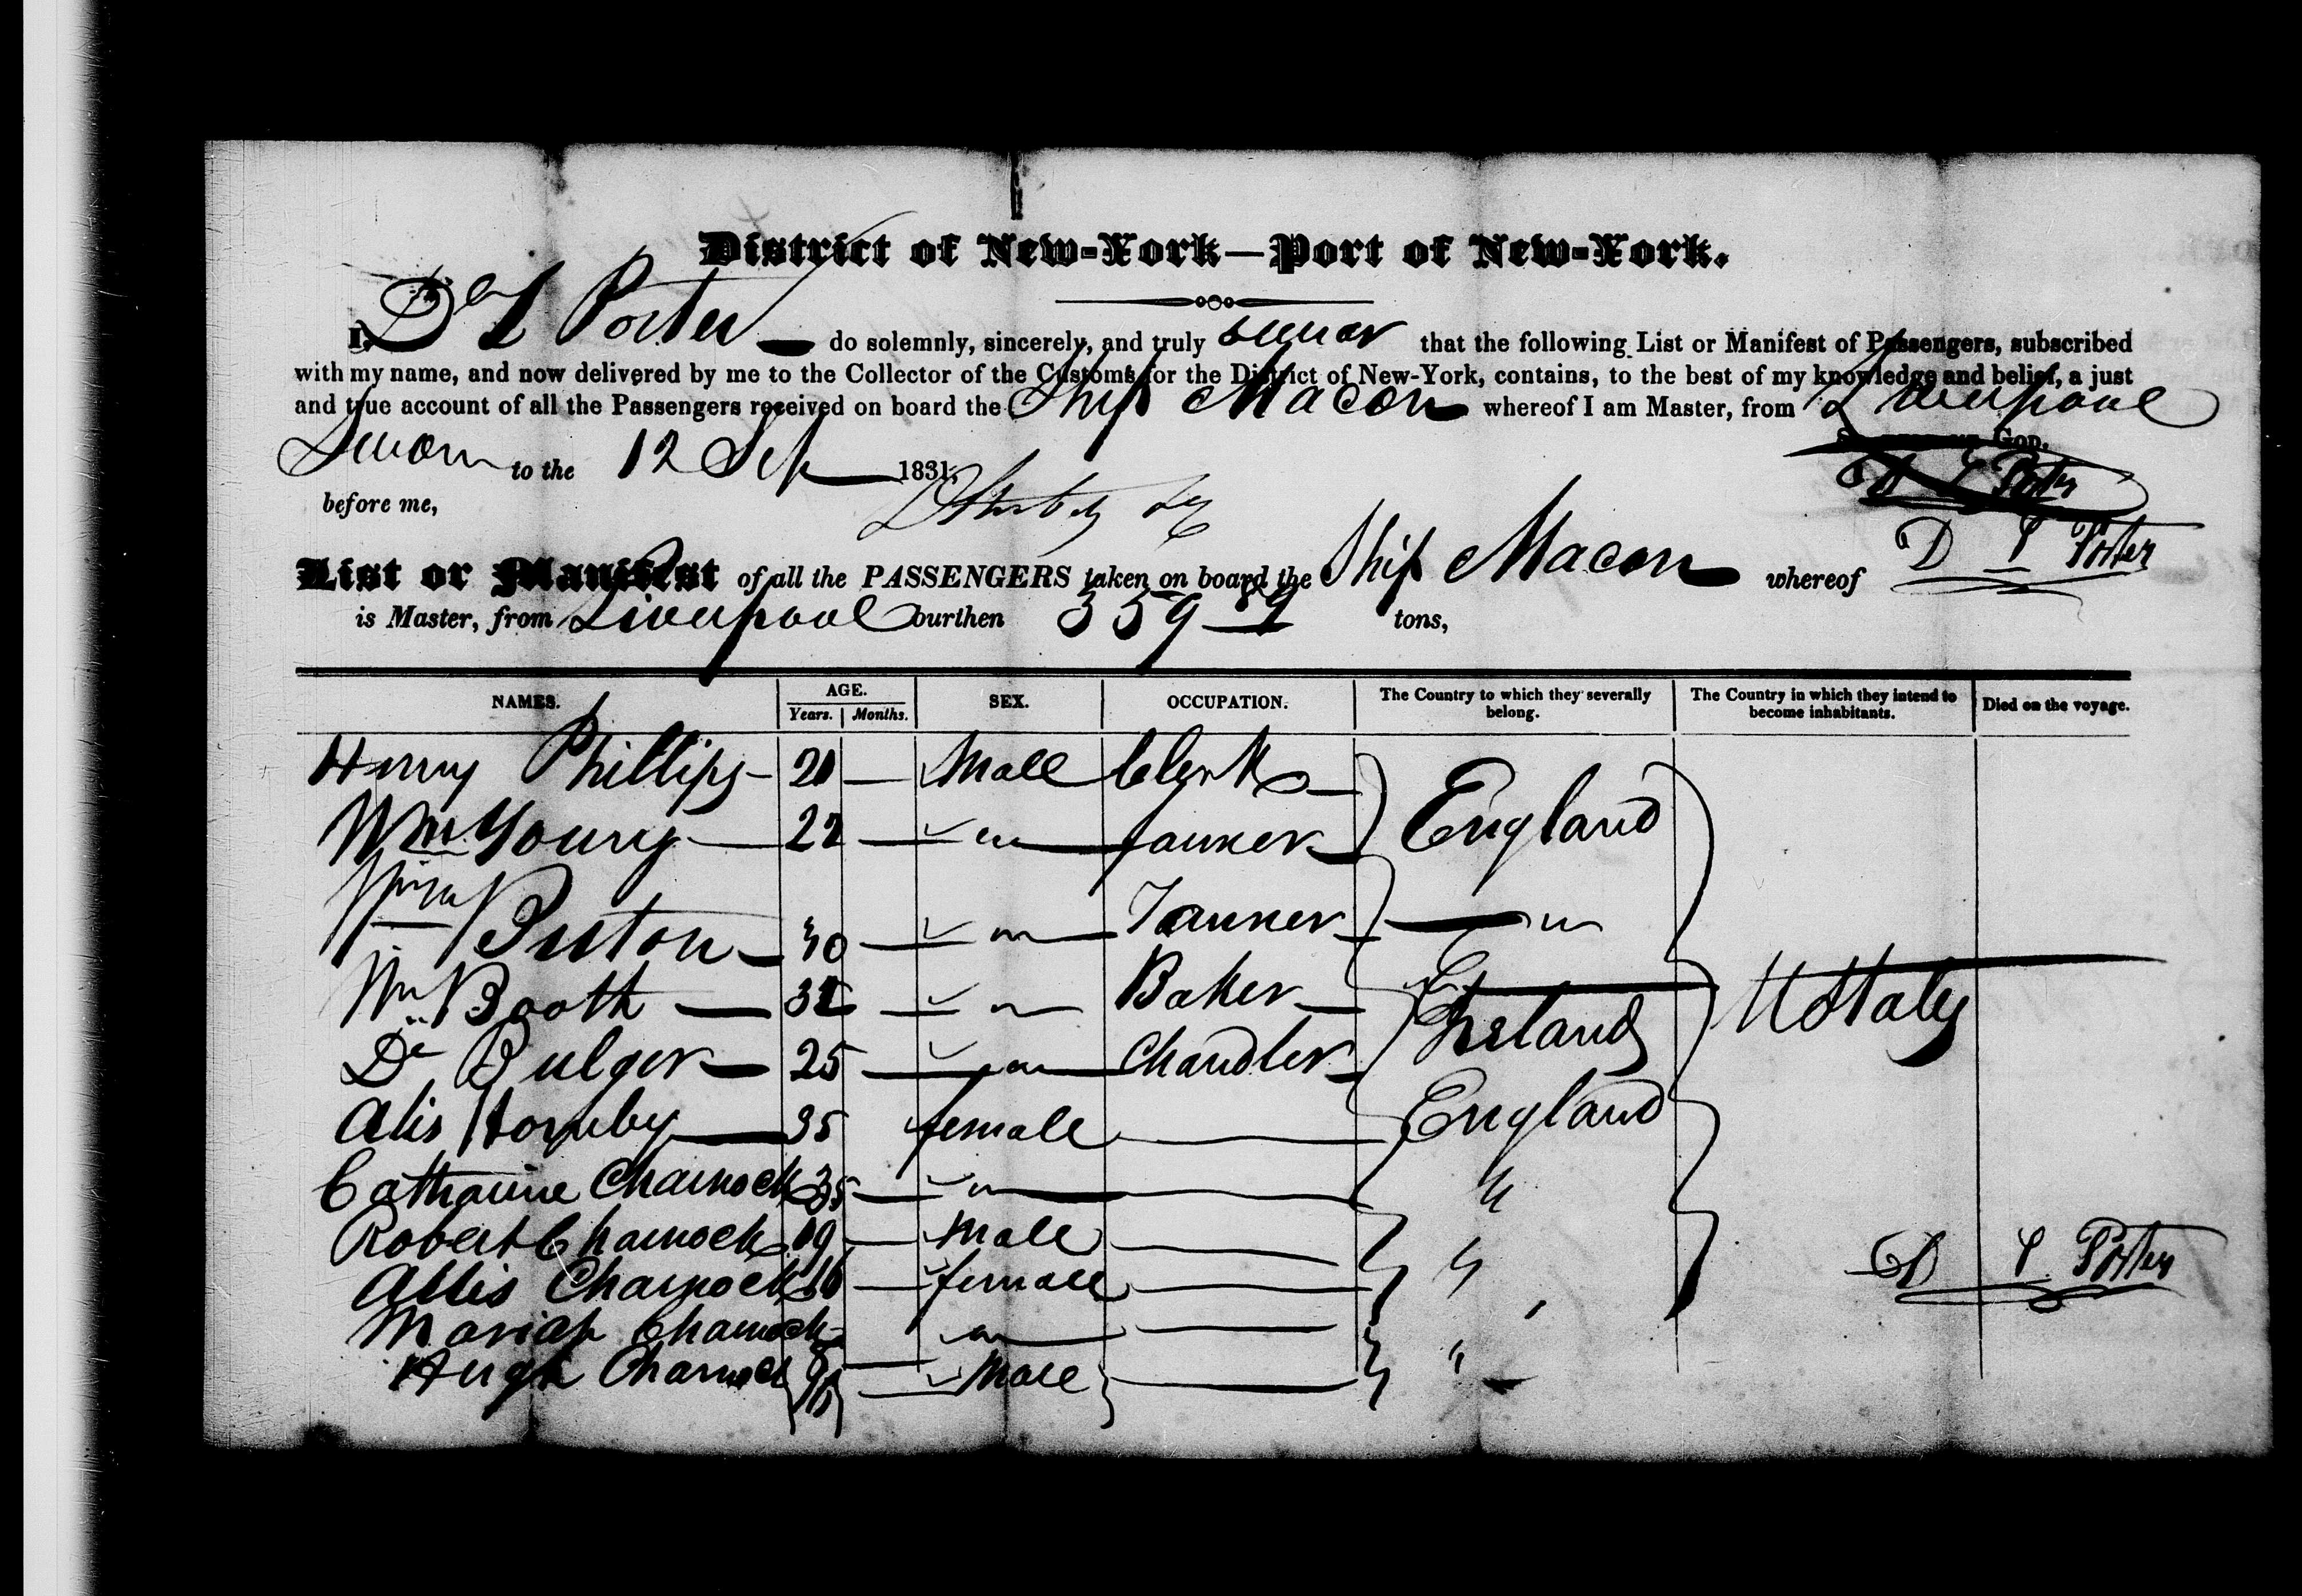 District of New-York—Port of New-York.
I, D L Porter do solemnly, sincerely, and truly swear that the following List or Manifest of Passengers, subscribed
with my name, and now delivered by me to the Collector of the Customs for the District of New-York, contains, to the best of my knowledge and belief, a just
and true account of all the Passengers received on board the Ship Macon whereof I am Master, from Liverpool
God.
Sworn to the 12 Sep 1831.
D L Porter
before me,
List or Manifest of all the PASSENGERS taken on board the Ship Macon whereof D L Porter
is Master, from Liverpool burthen 359 tons,
NAMES. AGE. Years. Months. SEX. OCCUPATION. The Country to which they severally belong. The Country in which they intend to become inhabitants. Died on the voyage.
Henry Phillips 21 Male Clerk
Wm Young 22 Tanner England
Wm Piston 30 Tanner
Wm Booth 32 Baker
Ireland U States
Dl Bulger 25 Chandler
Alis Hornby 35 female England
Catharine Charnock 35
Robert Charnock 19 Male
Allis Charnock 16 female
D L Porter
Mariah Charnock
Hugh Charnock Male